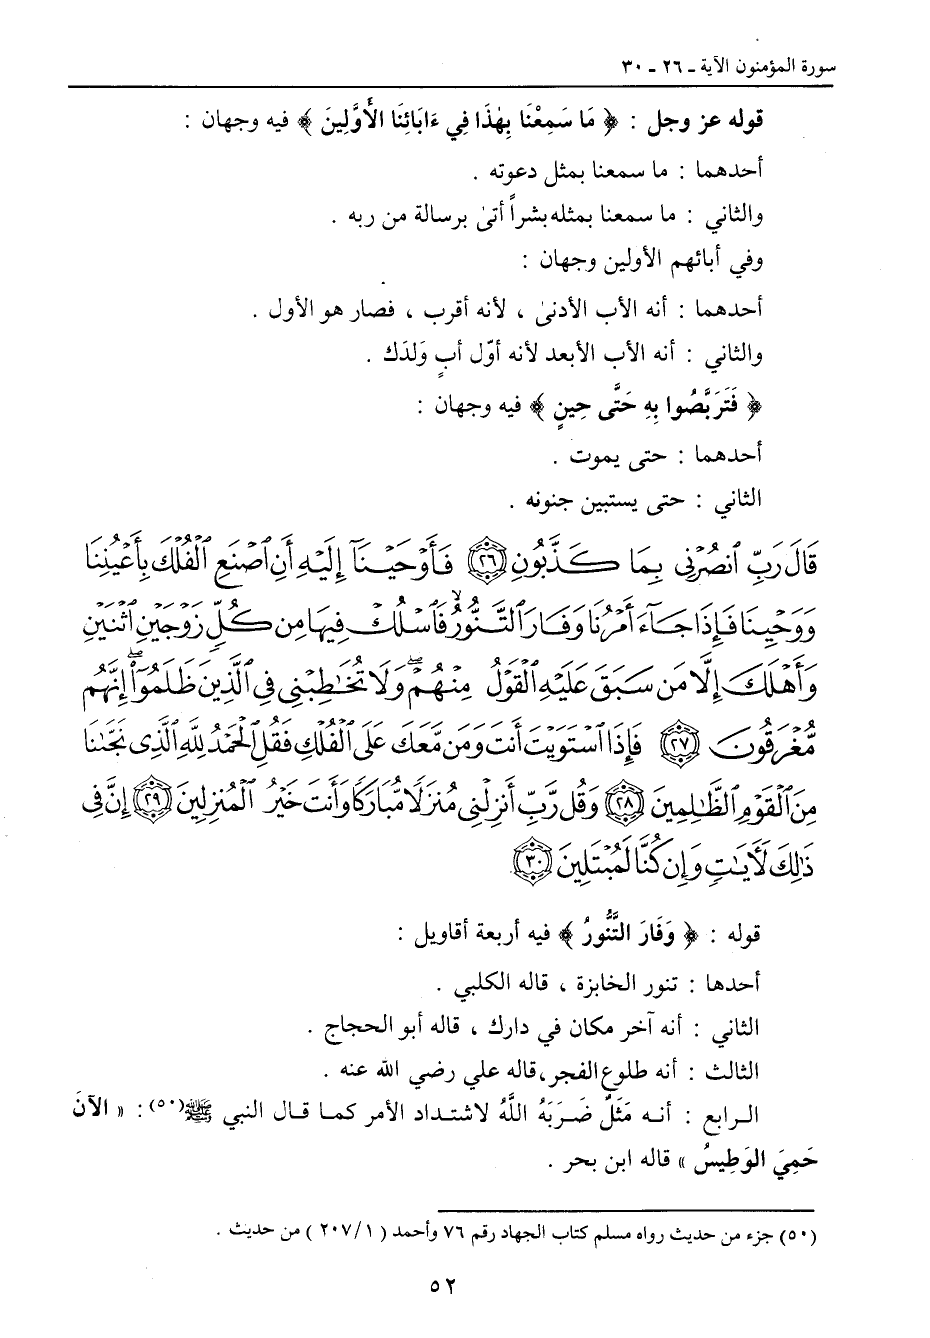 سورة المؤمنون الآية ـ ٢٦ ـ ٣٠
قوله عز وجل : ﴿ مَا سَمِعْنَا بِهٰذَا فِي ءَابَائِنَا الأَوَّلِينَ ﴾ فيه وجهان :
أحدهما : ما سمعنا بمثل دعوته .
والثاني : ما سمعنا بمثله بشراً أتىٰ برسالة من ربه .
وفي أبائهم الأولين وجهان :
أحدهما : أنه الأب الأدنىٰ ، لأنه أقرب ، فصار هو الأول .
والثاني : أنه الأب الأبعد لأنه أوّل أبٍ وَلدَك .
﴿ فَتَرَبَّصُوا بِهِ حَتَّى حِينٍ ﴾ فيه وجهان :
أحدهما : حتى يموت .
الثاني : حتى يستبين جنونه .
قَالَ رَبِّ ٱنصُرْنِي بِمَا كَذَّبُونِ ٢٦ فَأَوْحَيْنَآ إِلَيْهِ أَنِ ٱصْنَعِ ٱلْفُلْكَ بِأَعْيُنِنَا
وَوَحْيِنَا فَإِذَا جَآءَ أَمْرُنَا وَفَارَ ٱلتَّنُّورُ فَٱسْلُكْ فِيهَا مِن كُلٍّ زَوْجَيْنِ ٱثْنَيْنِ
وَأَهْلَكَ إِلَّا مَن سَبَقَ عَلَيْهِ ٱلْقَوْلُ مِنْهُمْ وَلَا تُخَٰطِبْنِي فِي ٱلَّذِينَ ظَلَمُوٓا۟ إِنَّهُم
مُّغْرَقُونَ ٢٧ فَإِذَا ٱسْتَوَيْتَ أَنتَ وَمَن مَّعَكَ عَلَى ٱلْفُلْكِ فَقُلِ ٱلْحَمْدُ لِلَّهِ ٱلَّذِي نَجَّىٰنَا
مِنَ ٱلْقَوْمِ ٱلظَّٰلِمِينَ ٢٨ وَقُل رَّبِّ أَنزِلْنِي مُنزَلًا مُّبَارَكًا وَأَنتَ خَيْرُ ٱلْمُنزِلِينَ ٢٩ إِنَّ فِي
ذَٰلِكَ لَأَيَٰتٍ وَإِن كُنَّا لَمُبْتَلِينَ ٣٠
قوله : ﴿ وَفَارَ التَّنُّورُ ﴾ فيه أربعة أقاويل :
أحدها : تنور الخابزة ، قاله الكلبي .
الثاني : أنه آخر مكان في دارك ، قاله أبو الحجاج .
الثالث : أنه طلوع الفجر، قاله علي رضي الله عنه .
الـرابع : أنـه مَثَلٌ ضَرَبَهُ اللَّهُ لاشتـداد الأمر كمـا قـال النبي ﷺ(٥٠) : « الآنَ
حَمِيَ الوَطِيسُ » قاله ابن بحر .
(٥٠) جزء من حديث رواه مسلم كتاب الجهاد رقم ٧٦ وأحمد ( ٢٠٧/١ ) من حديث .
٥٢